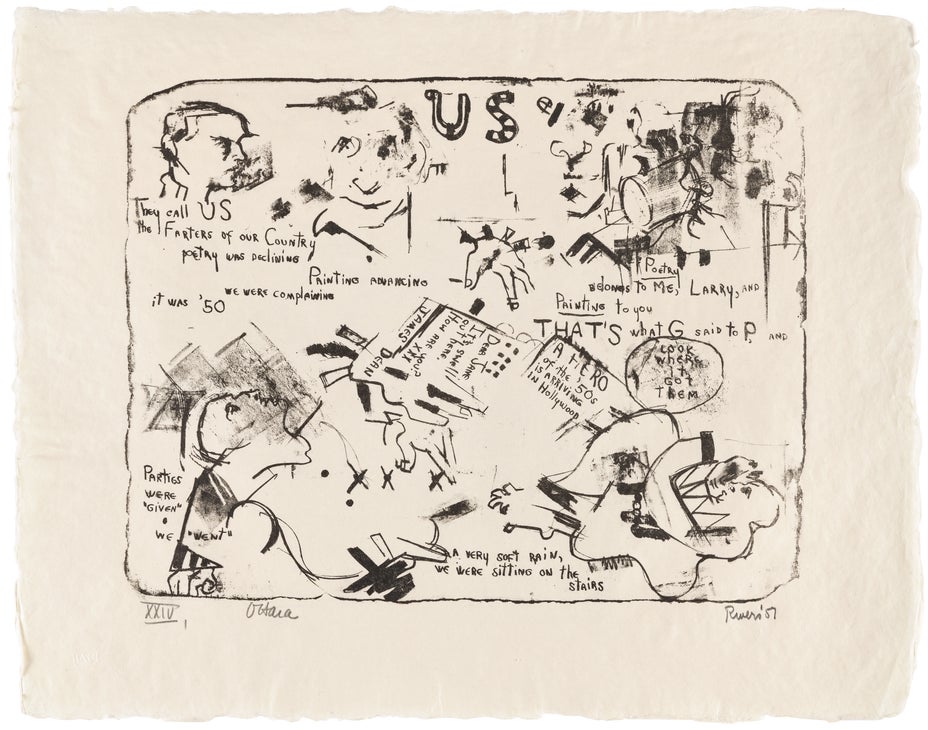 US
They call US
the FARTERS of our Country
poetry was declining
Painting advancing
we were complaining
it was '50
Poetry
belongs to Me, Larry, and
Painting to you
THAT'S what G said to P and
look
where
it
got
them
JAMES
DEAN
Dear Jane
It's swell
out here.
How are
you?
XXX
A HERO
of the '50s
is arriving
in Hollywood
Parties
were
"given"
we "went"
a very soft rain,
we were sitting on the
stairs
XXIV
O'Hara
Rivers '57